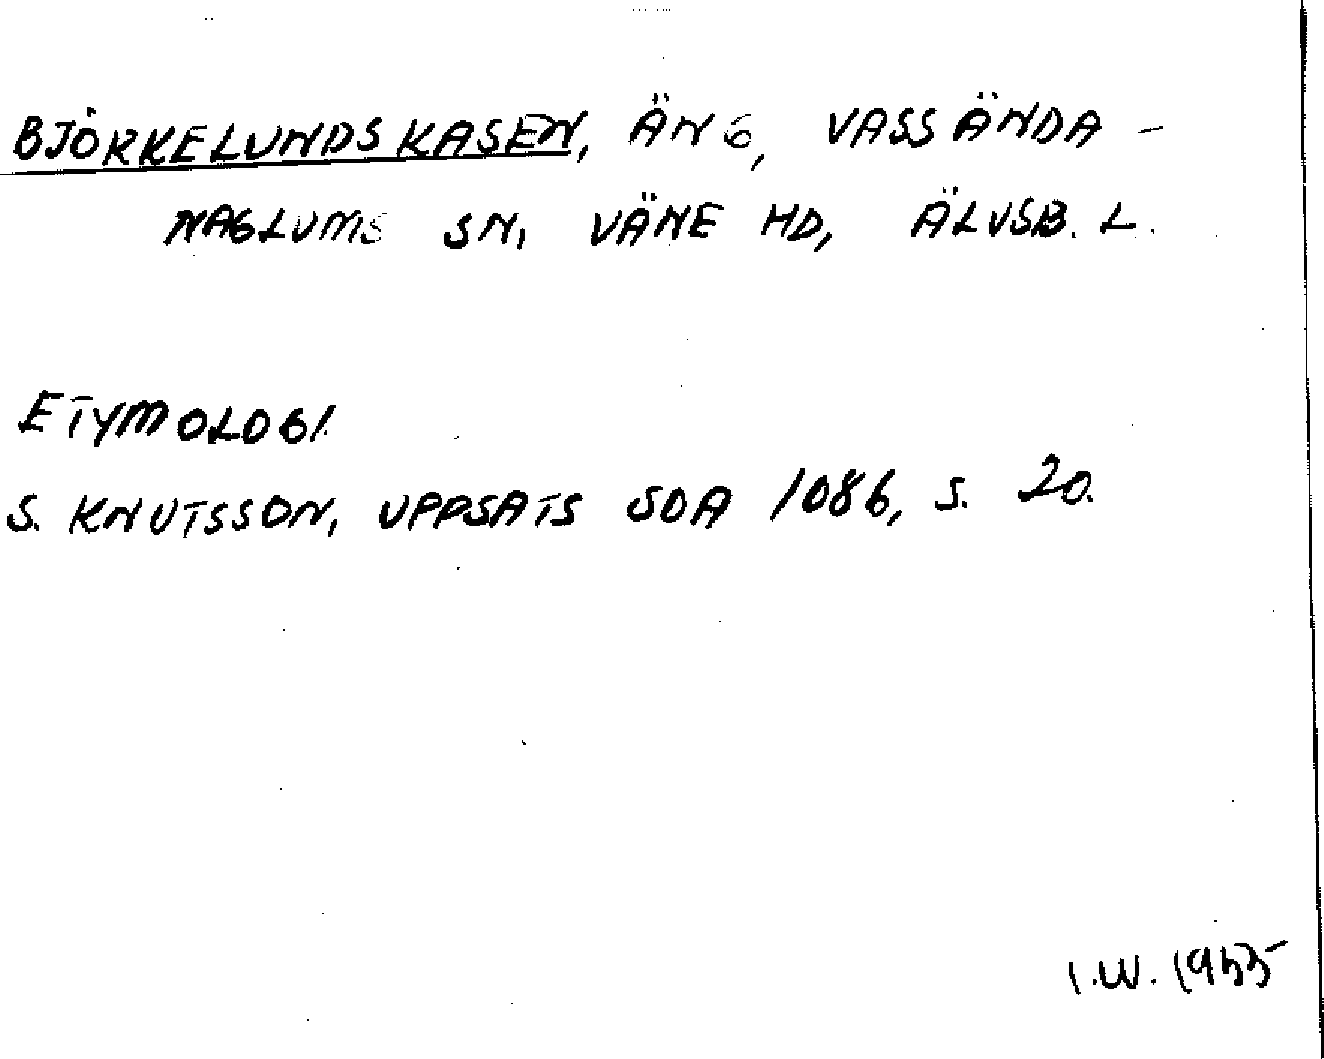 BJÖRKELUNDSKASEN, ÄNG, VASSÄNDA-
NAGLUMS SN, VÄNE HD, ÄLVSB. L.
ETYMOLOGI
S. KNUTSSON, UPPSATS SOA 1086, S. 20.
I.W. 1955